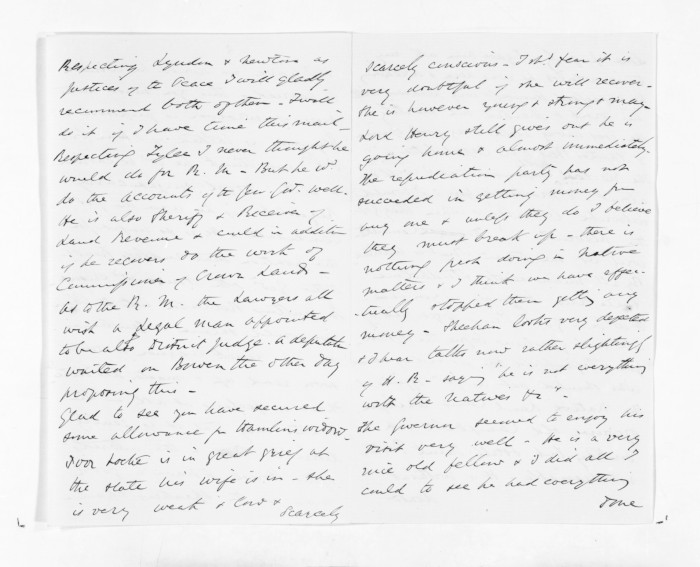 Respecting Lyndon & Newton as
Justices of the Peace I will gladly
recommend both of them - I will
do it if I have time this mail -
Respecting Tylee I never thought he
would do for R. M. - But he wd.
do the accounts of the Gen Govt. well.
He is also Sheriff & Receiver of
Land Revenue & could in addition
if he recovers do the work of
Commissioner of Crown Lands -
As to the R. M. the Lawyers all
wish a Legal man appointed
to be also District Judge. A deputation
waited on Bowen the other day
proposing this -
Glad to see you have secured
some allowance for Hamlin's widow -
Poor Locke is in great grief at
the state his wife is in - she
is very weak & low &
scarcely
scarcely conscious - I shd. fear it is
very doubtful if she will recover -
She is however young & strong & may -
Lord Henry still gives out he is
going home & almost immediately.
The repudiation party has not
succeeded in getting money from
any one & unless they do I believe
they must break up - there is
nothing fresh doing in Native
matters & I think we have effec-
-tually stopped them getting any
money - Sheehan looks very dejected
& I hear talks now rather slightingly
of H. R. - saying "he is not everything
with the Natives &c" -
The Governor seemed to enjoy his
visit very well - He is a very
nice old fellow & I did all I
could to see he had everything
done